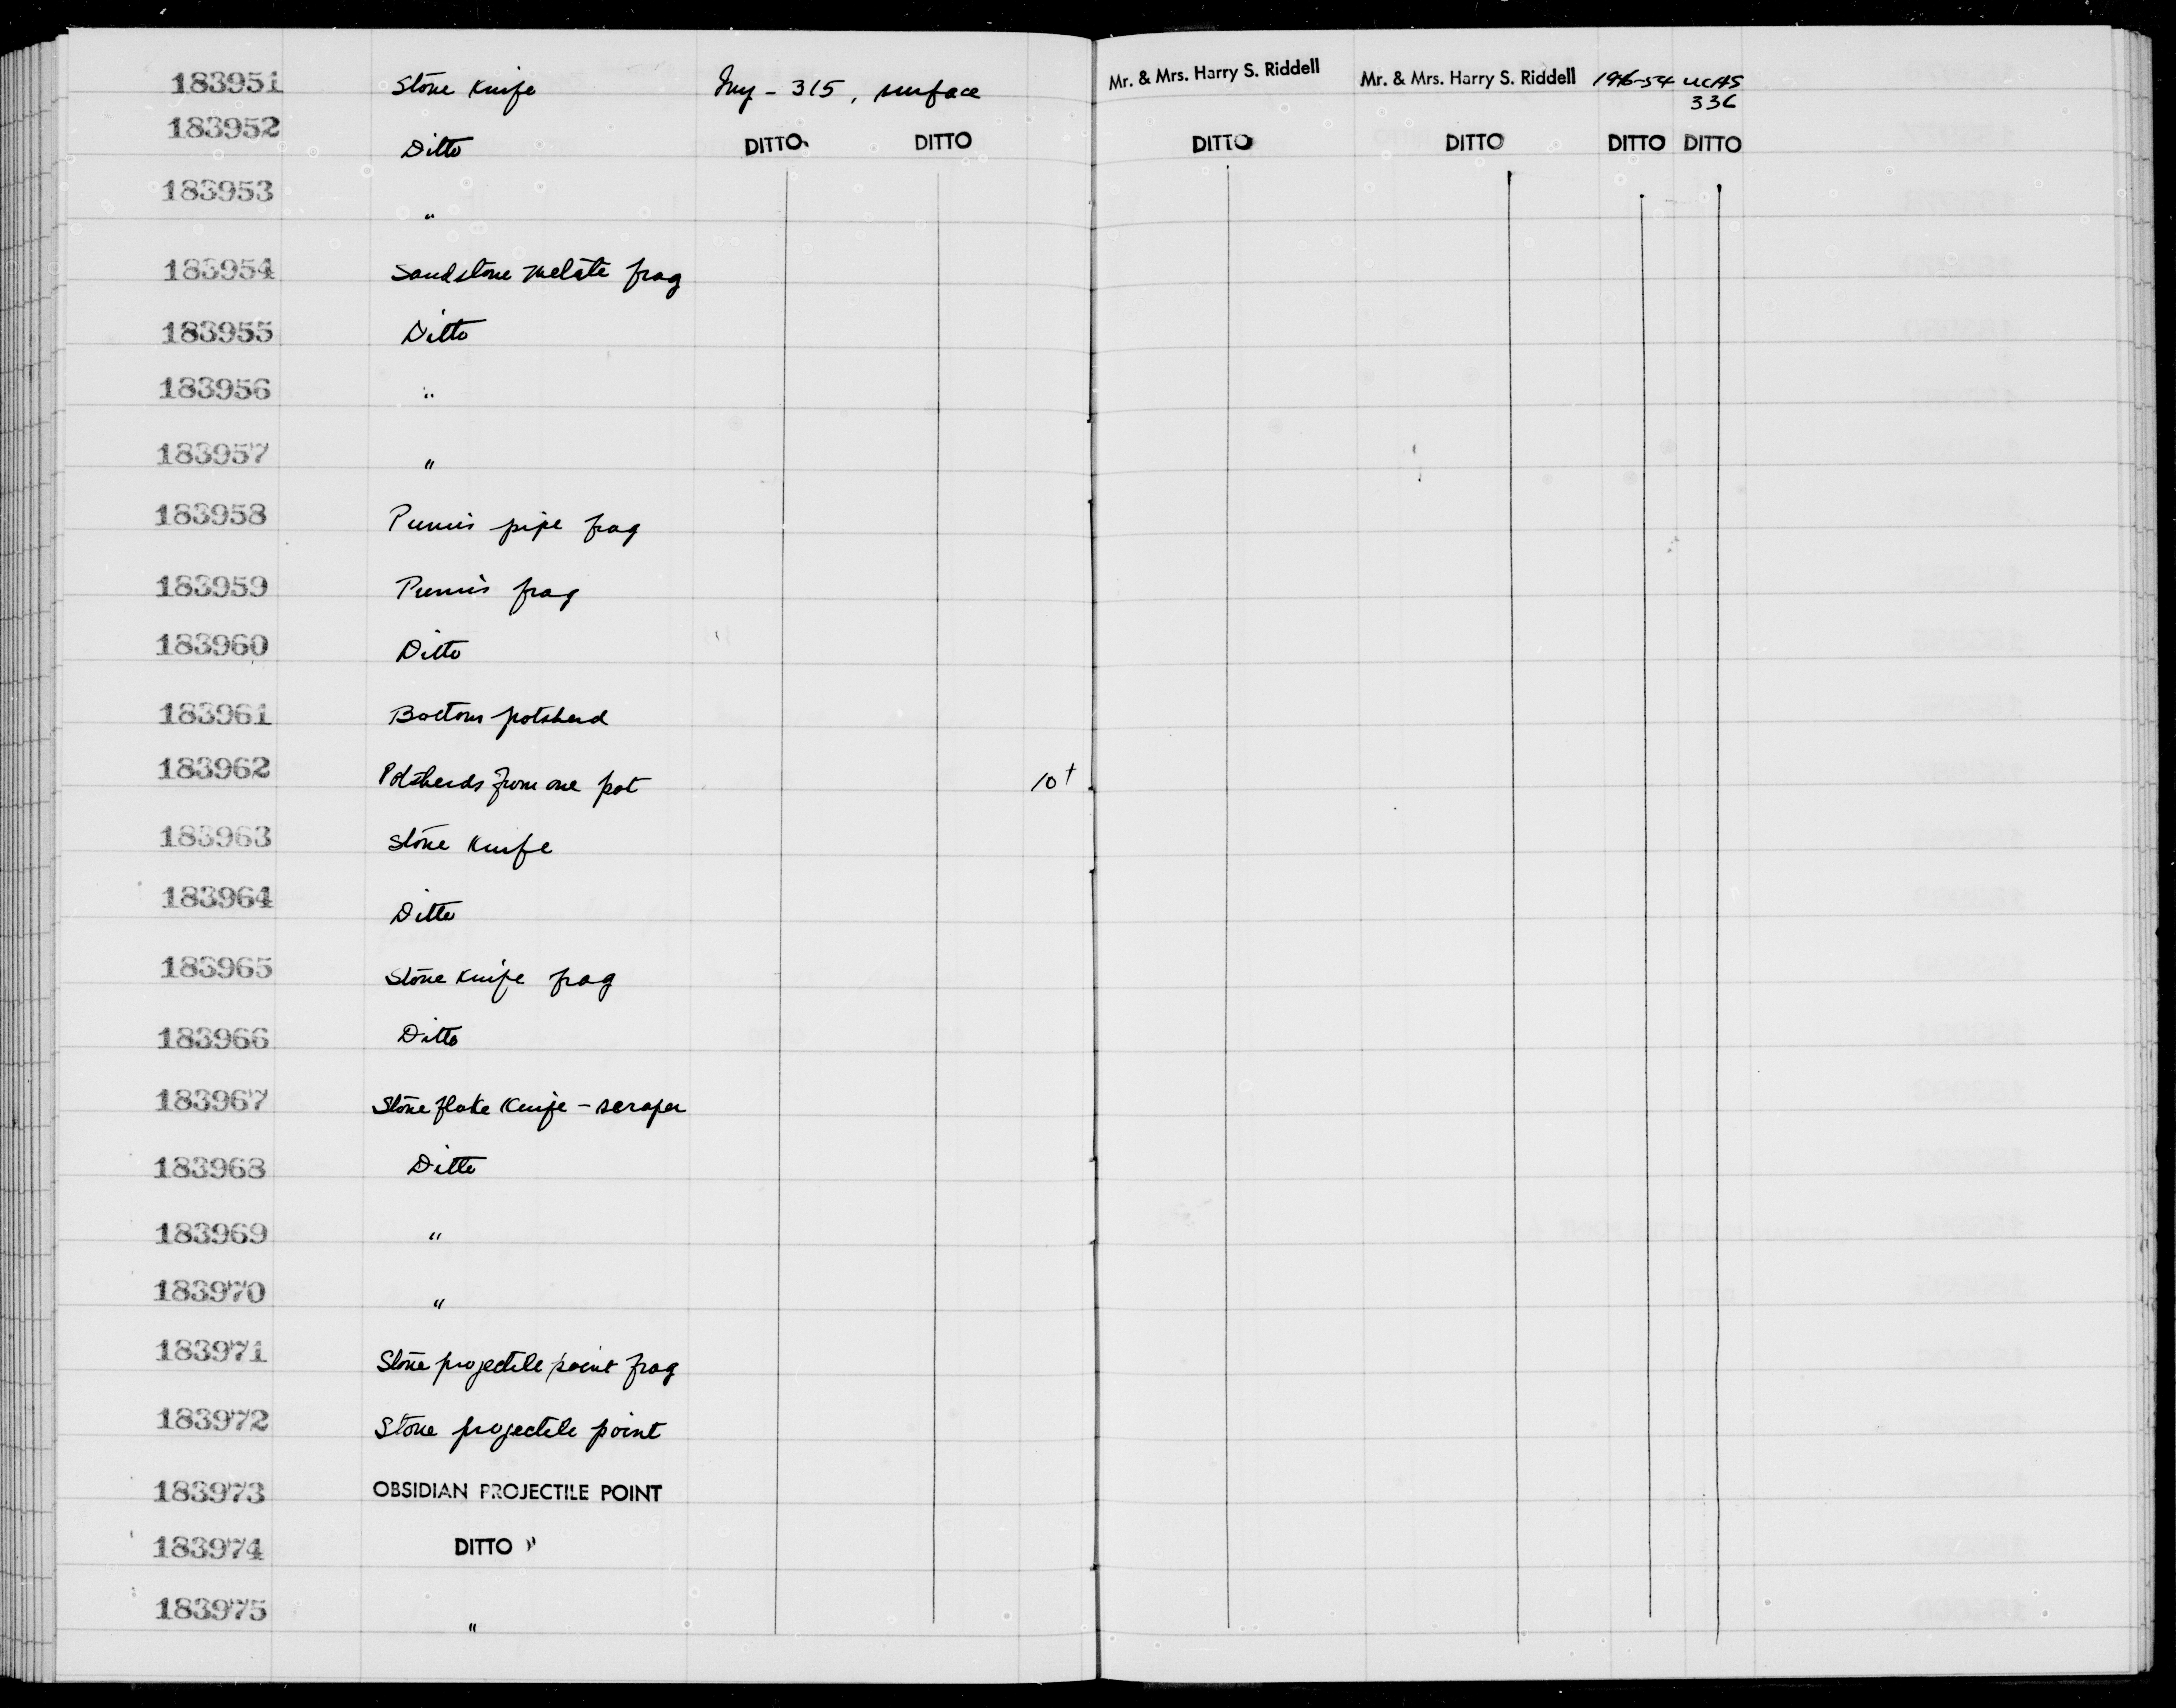 183951 Stone Knife Iny - 315, surface Mr. & Mrs. Harry S. Riddell Mr. & Mrs. Harry S. Riddell 1946-54 UCAS
336
183952 Ditto DITTO DITTO DITTO DITTO DITTO DITTO
183953 "
183954 Sandstone metate frag
183955 Ditto
183956 "
183957 "
183958 Pumis pipe frag
183959 Pumis frag
183960 Ditto
183961 Bottom potsherd
183962 Potsherds from one pot 10+
183963 Stone Knife
183964 Ditto
183965 Stone Knife frag
183966 Ditto
183967 Stone flake Knife - scraper
183968 Ditto
183969 "
183970 "
183971 Stone projectile point frag
183972 Stone projectile point
183973 OBSIDIAN PROJECTILE POINT
183974 DITTO "
183975 "